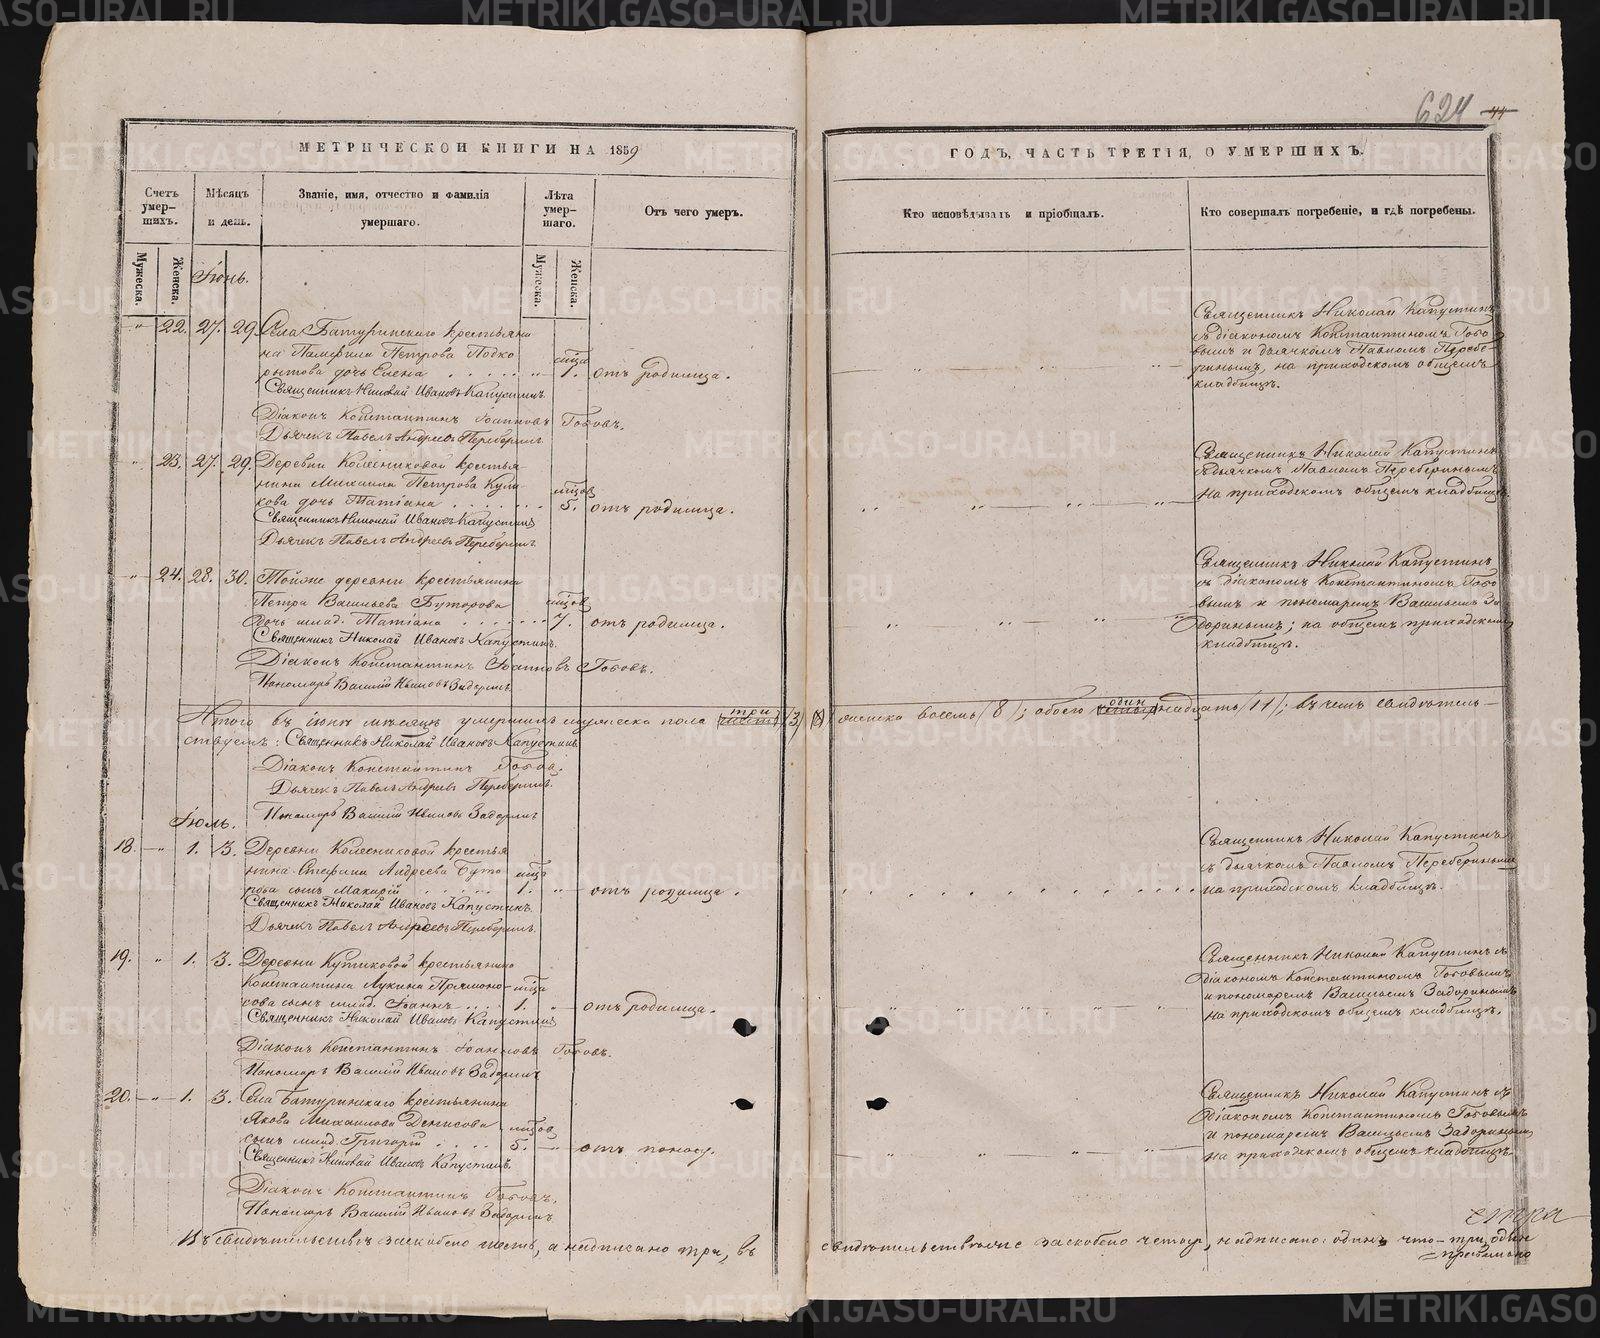 624 44
МЕТРИЧЕСКОЙ КНИГИ НА 1859
ГОДЪ, ЧАСТЬ ТРЕТІЯ, О УМЕРШИХЪ.
Счетъ умер-шихъ.
Мѣсяцъ и день.
Званіе, имя, отчество и фамилія умершаго.
Лѣта умер-шаго.
Отъ чего умеръ.
Кто исповѣдывалъ и пріобщалъ.
Кто совершалъ погребеніе, и гдѣ погребены.
Мужеска.
Женска.
Мужеска.
Женска.
Іюнь.
22. 27. 29. Села Батуринскаго крестьяни
на Памфила Петрова Подко
рытова дочь Елена 1. отъ родимца.
Священникъ Николай Ивановъ Капустинъ
Діаконъ Константинъ Іоанновъ Гобовъ.
Дьячекъ Павелъ Андреевъ Переберинъ
Священникъ Николай Капустинъ
съ діакономъ Константиномъ Гобо
вымъ и дьячкомъ Павломъ Перебе-
ринымъ, на приходскомъ общемъ
кладбищѣ.
23. 27. 29. Деревни Колесниковой крестья
нина Михаила Петрова Кули
кова дочь Татіана 5. отъ родимца.
Священникъ Николай Ивановъ Капустинъ
Дьячекъ Павелъ Андреевъ Переберинъ
Священникъ Николай Капустинъ
съ дьячкомъ Павломъ Переберинымъ
на приходскомъ общемъ кладбищѣ.
24. 28. 30. Тойже деревни крестьянина
Петра Васильева Буторова
дочь млад. Татіана 7. отъ родимца.
Священникъ Николай Ивановъ Капустинъ.
Діаконъ Константинъ Іоанновъ Гобовъ.
Пономарь Василій Ивановъ Задоринъ
Священникъ Николай Капустинъ
съ діакономъ Константиномъ Гобо
вымъ и пономаремъ Васильемъ За
доринымъ; на общемъ приходскомъ
кладбищѣ.
Итого въ іюнѣ мѣсяцѣ умершихъ мужеска пола три /3/ женска восемь /8/; обоего одиннадцать /11/; въ чемъ свидѣтель-
ствуемъ: Священникъ Николай Ивановъ Капустинъ
Діаконъ Константинъ Гобовъ.
Дьячекъ Павелъ Андреевъ Переберинъ.
Пономарь Василій Ивановъ Задоринъ
Іюль.
18. 1. 3. Деревни Колесниковой крестья
нина Стефана Андреева Буто
рова сынъ Макарій 1. отъ родимца.
Священникъ Николай Ивановъ Капустинъ.
Дьячекъ Павелъ Андреевъ Переберинъ.
Священникъ Николай Капустинъ
съ дьячкомъ Павломъ Переберинымъ
на приходскомъ кладбищѣ.
19. 1. 3. Деревни Кутиковой крестьянина
Константина Лукина Прямоно-
сова сынъ млад. Іоаннъ 1. отъ родимца.
Священникъ Николай Ивановъ Капустинъ
Діаконъ Константинъ Іоанновъ Гобовъ.
Пономарь Василій Ивановъ Задоринъ
Священникъ Николай Капустинъ съ
діакономъ Константиномъ Гобовымъ
и пономаремъ Васильемъ Задоринымъ
на приходскомъ общемъ кладбищѣ.
20. 1. 3. Села Батуринскаго крестьянина
Якова Михаилова Денисова
сынъ млад. Григорій 5. отъ поносу.
Священникъ Николай Ивановъ Капустинъ.
Діаконъ Константинъ Гобовъ.
Пономарь Василій Ивановъ Задоринъ
Священникъ Николай Капустинъ съ
діакономъ Константиномъ Гобовымъ
и пономаремъ Васильемъ Задоринымъ
на приходскомъ общемъ кладбищѣ.
Въ свидѣтельствѣ заскоблено шесть, а надписано три, въ
свидѣтельствѣ заскоблено четыр, надписано: одинъ что-три, один
METRIKI.GASO-URAL.RU